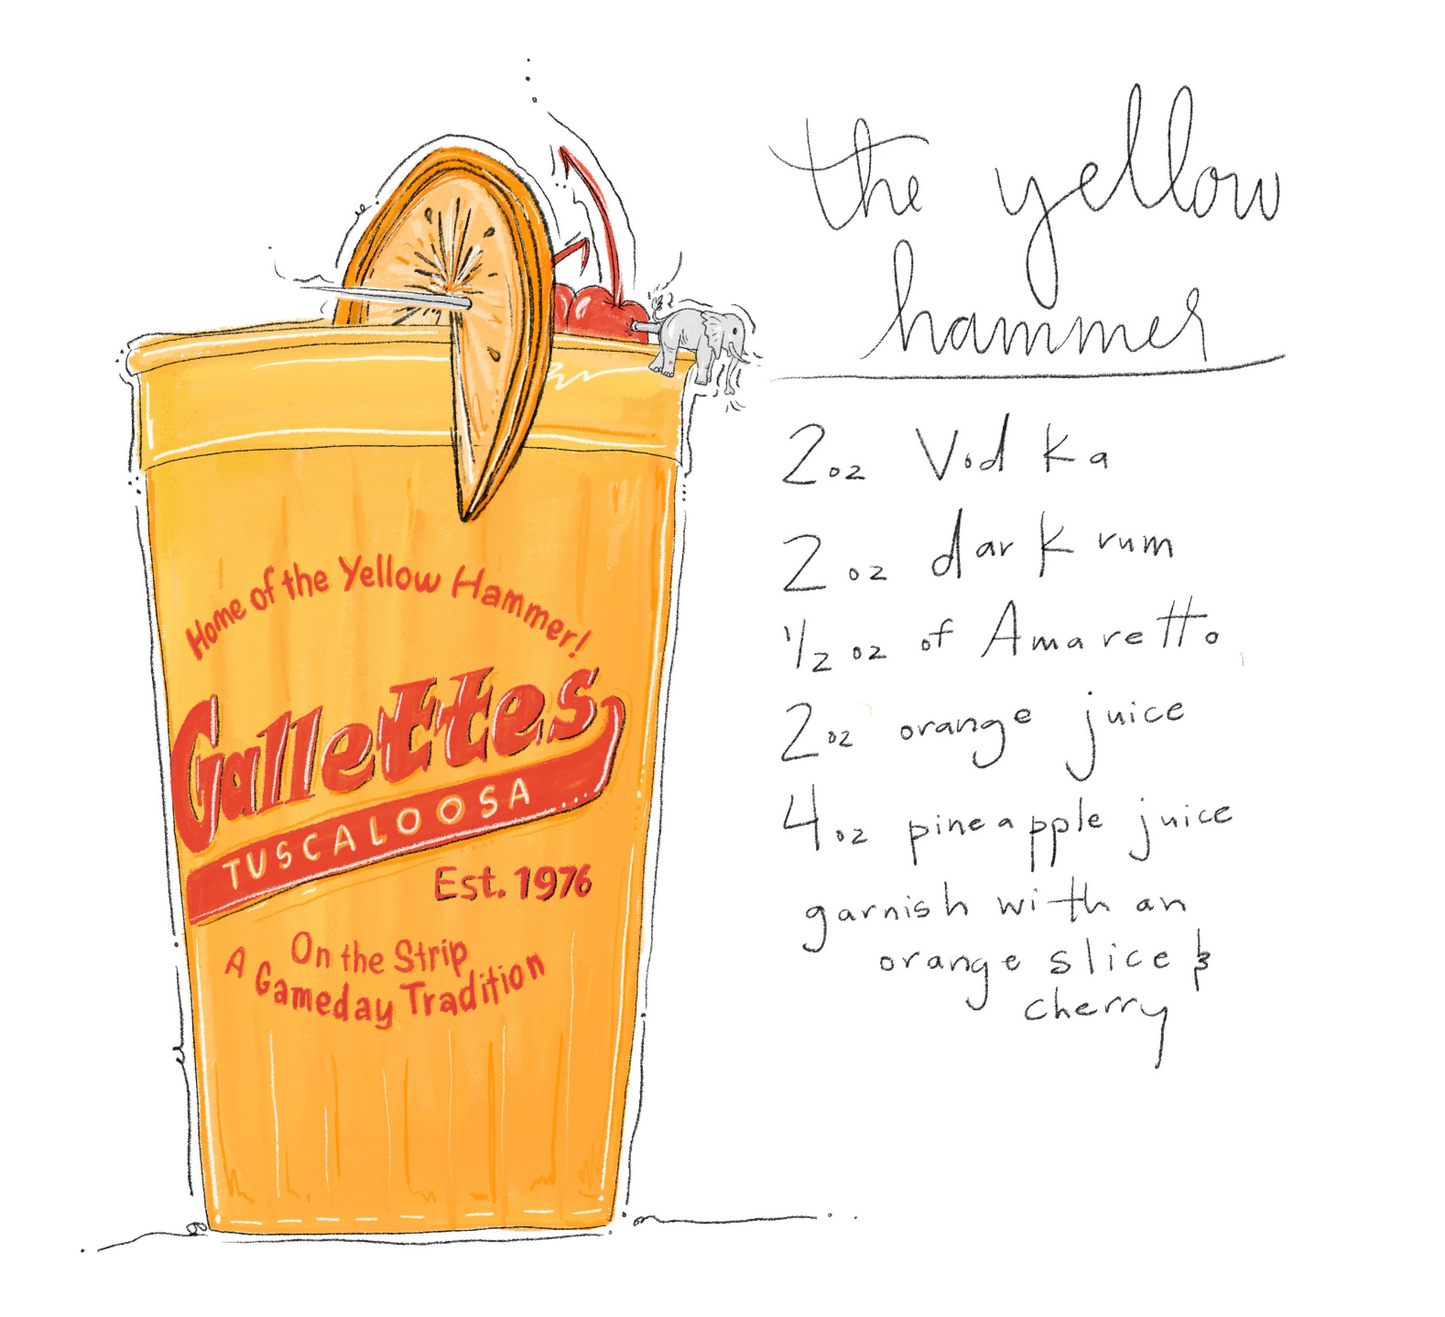 the yellow
hammer
2oz Vodka
2 oz dark rum
1/2 oz of Amaretto
2oz orange juice
4oz pineapple juice
garnish with an
orange slice &
cherry
Home of the Yellow Hammer!
Gallettes
TUSCALOOSA
Est. 1976
On the Strip
A Gameday Tradition